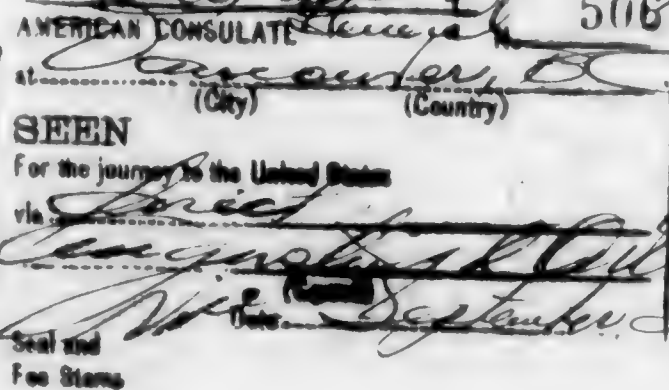 AMERICAN CONSULATE General No. 506
at Vancouver, BC.
(City) (Country)
SEEN
For the journey to the United States
via Direct
Date September
Seal and
Fee Stamp